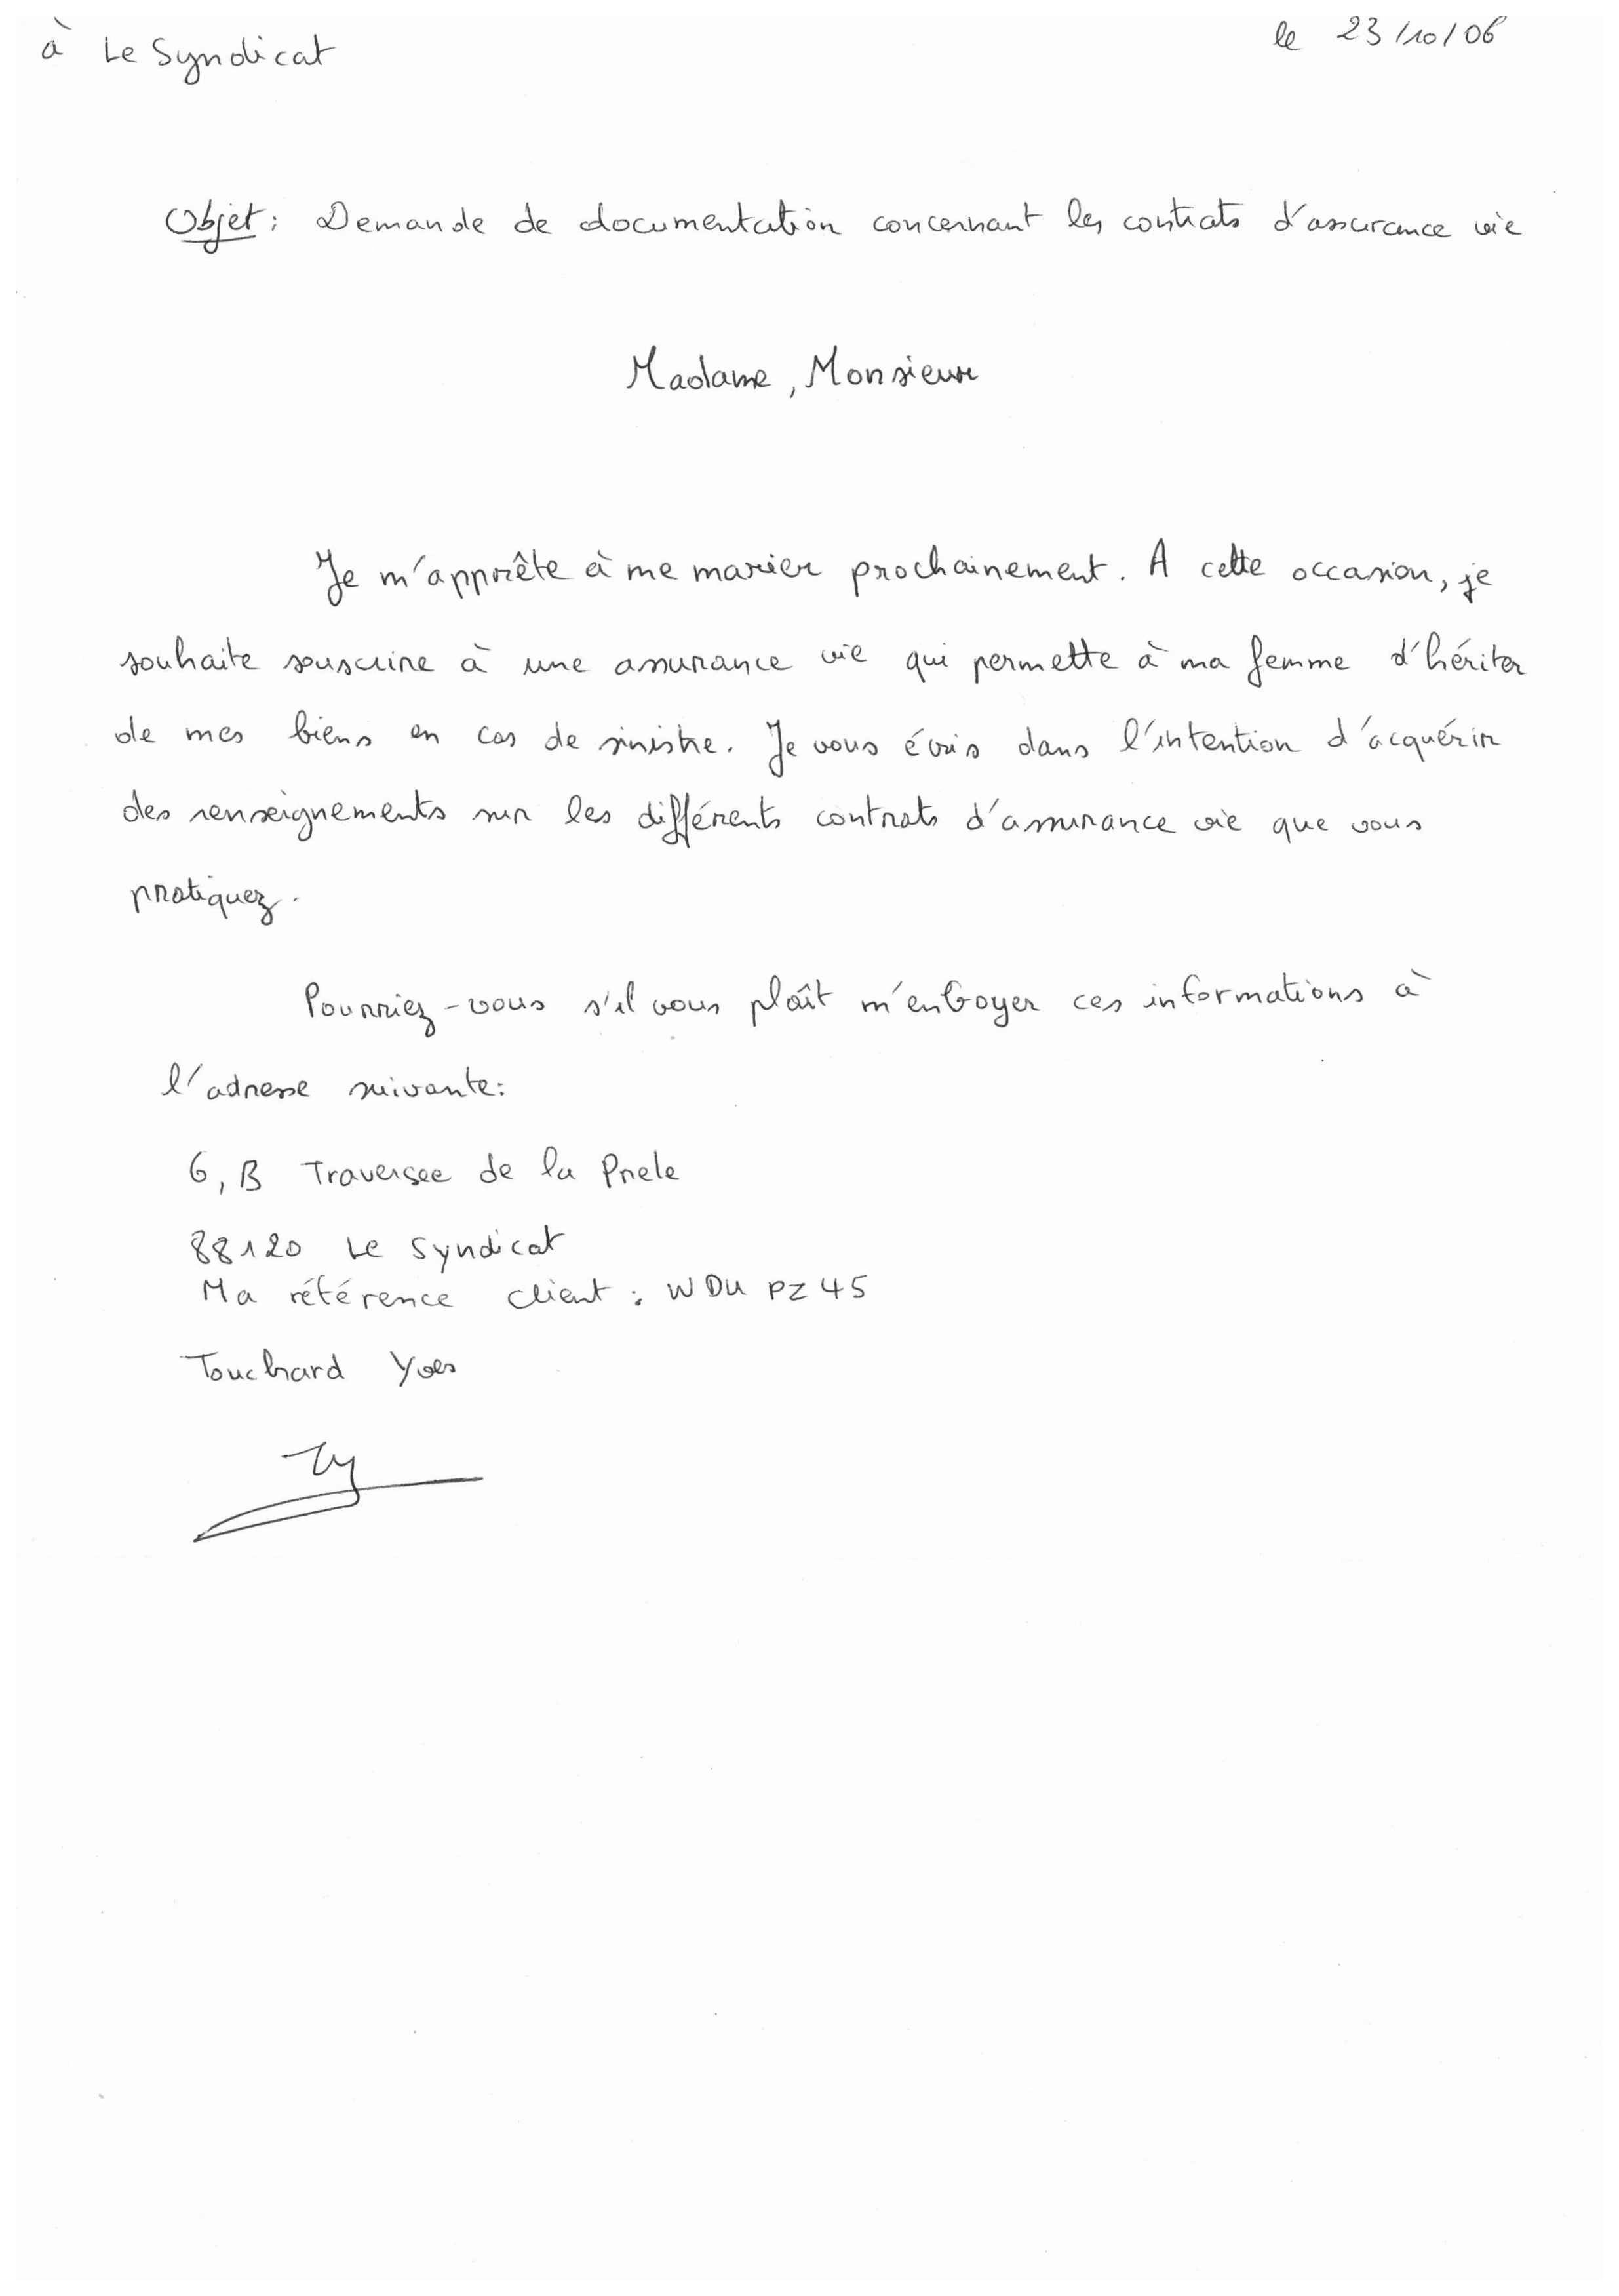 à Le Syndicat
le 23/10/06
Objet : Demande de documentation concernant les contrats d'assurance vie
Madame, Monsieur
Je m'apprête à me marier prochainement. A cette occasion, je
souhaite souscrire à une assurance vie qui permette à ma femme d'hériter
de mes biens en cas de sinistre. Je vous écris dans l'intention d'acquérir
des renseignements sur les différents contrats d'assurance vie que vous
pratiquez.
Pourriez-vous s'il vous plaît m'envoyer ces informations à
l'adresse suivante:
6, B Traversee de la Prele
88120 Le Syndicat
Ma référence client : WDU PZ 45
Touchard Yves